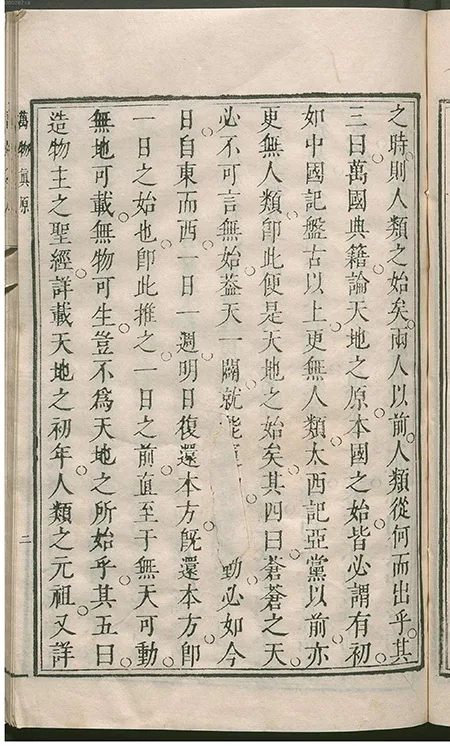 之時則人類之始矣兩人以前人類從何而出乎其
三曰萬國典籍論天地之原本國之始皆必謂有初
如中國記盤古以上更無人類太西記亞黨以前亦
更無人類卽此便是天地之始矣其四曰蒼蒼之天
必不可言無始蓋天一闢就能 動必如今
日自東而西一日一週明日復還本方旣還本方卽
一日之始也卽此推之一日之前直至于無天可動
無地可載無物可生豈不爲天地之所始乎其五曰
造物主之聖經詳載天地之初年人類之元祖又詳
萬物眞原
二